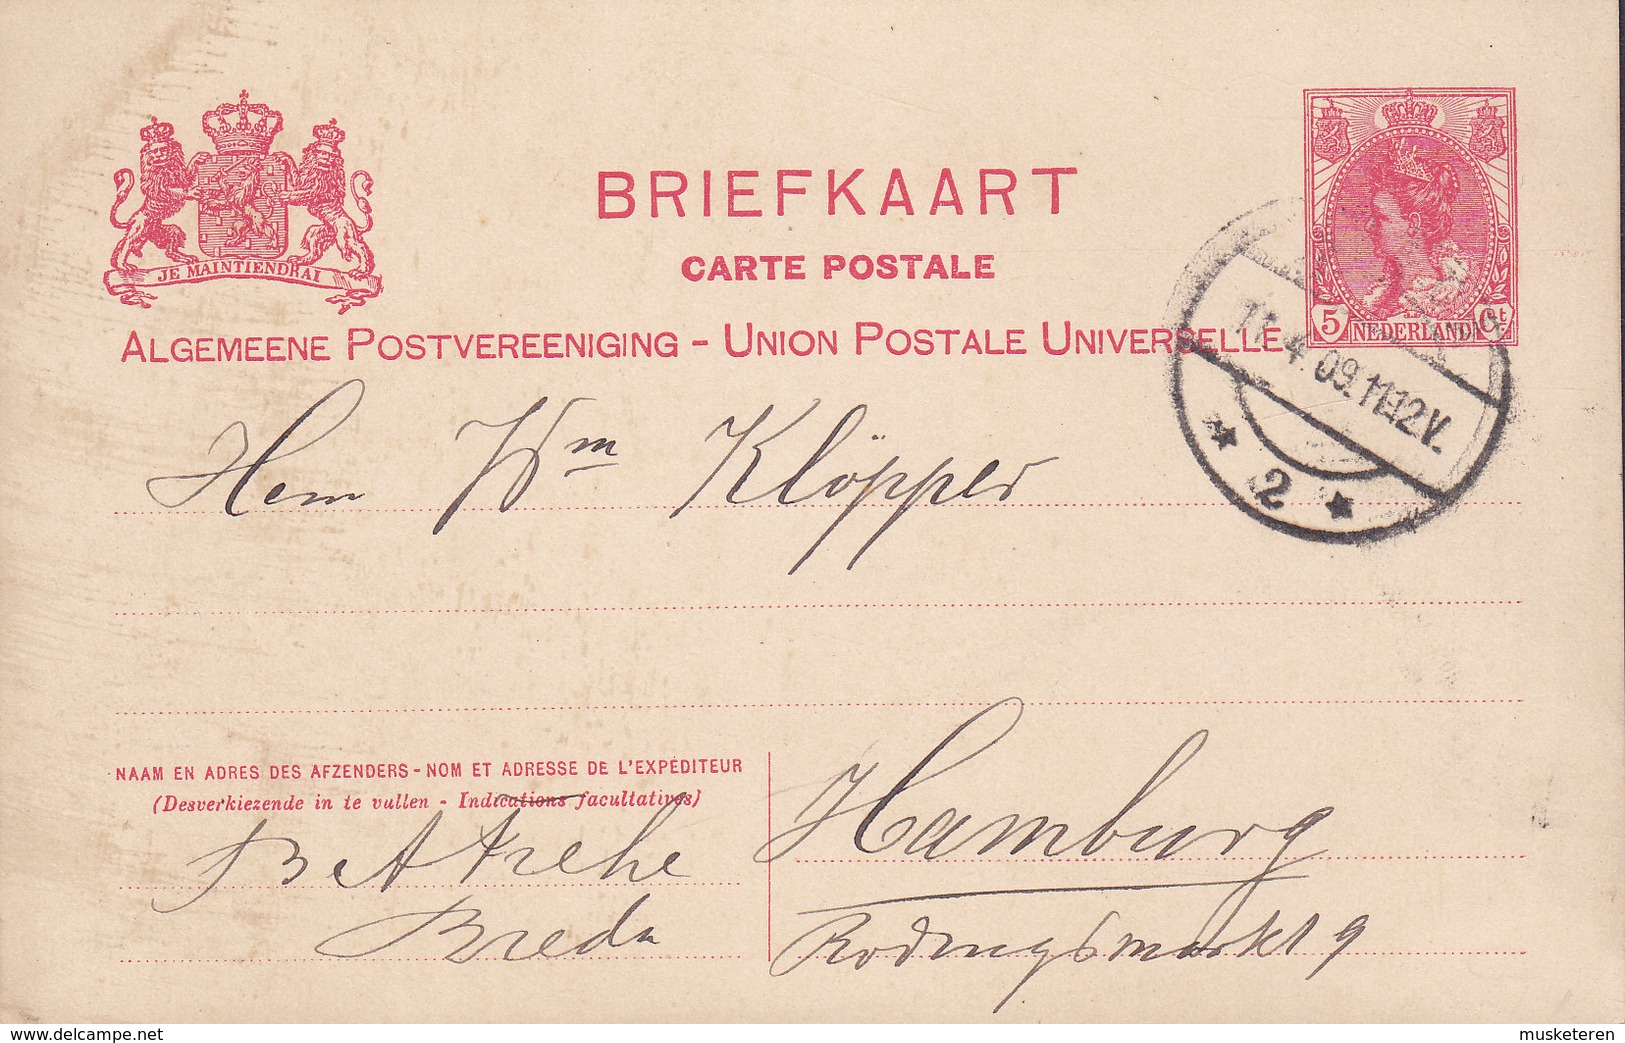 JE MAINTIENDRAI
BRIEFKAART
CARTE POSTALE
ALGEMEENE POSTVEREENIGING - UNION POSTALE UNIVERSELLE
5 NEDERLAND Ct
4.09.11-12V.
2
Herrn Wm Klöpper
NAAM EN ADRES DES AFZENDERS - NOM ET ADRESSE DE L'EXPÉDITEUR
(Desverkiezende in te vullen - Indications facultatives)
Breda
Hamburg
Rödingsmarkt 9
www.delcampe.net
musketeren